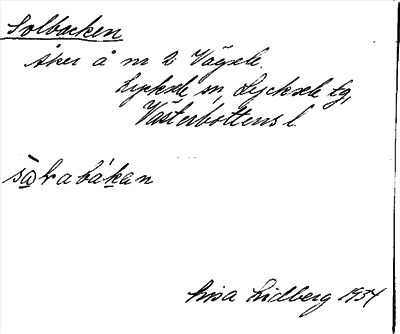 Solbacken
Åker å nr 2 Vägsele.
Lycksele sn, Lycksele tg,
Västerbottens l.
sàlrabákan
Lisa Lidberg 1934